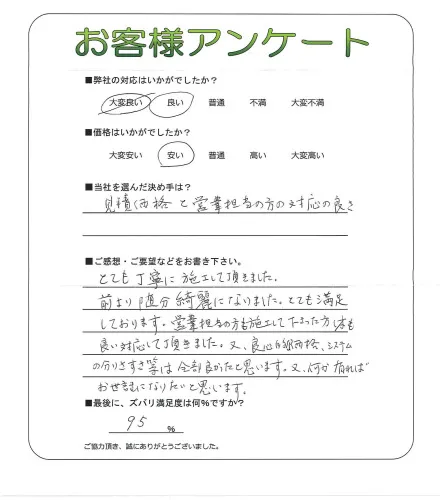 お客様アンケート
■弊社の対応はいかがでしたか?
大変良い 良い 普通 不満 大変不満
■価格はいかがでしたか?
大変安い 安い 普通 高い 大変高い
■当社を選んだ決め手は?
見積価格と営業担当の方の対応の良さ
■ご感想・ご要望などをお書き下さい。
とても丁寧に施工して頂きました。
前より随分綺麗になりました。とても満足
しております。営業担当の方も施工して下さった方
良い対応して頂きました。又、良心的価格、システム
の分りやすさ等は全部良かったと思います。又、何か有れば
お世話になりたいと思います。
■最後に、ズバリ満足度は何%ですか?
95 %
ご協力頂き、誠にありがとうございました。